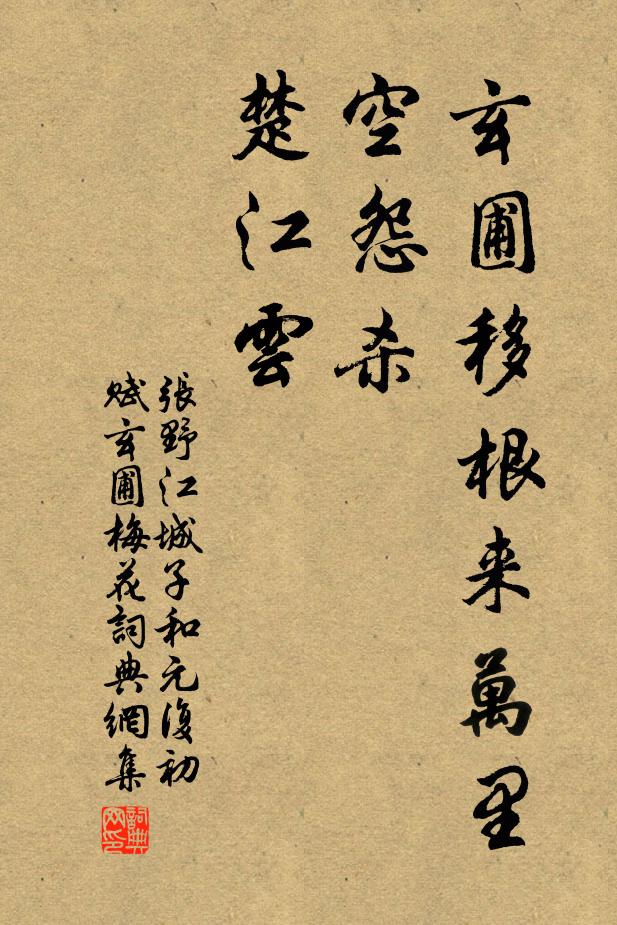 玄圃移根来萬里
空怨杀
楚江雲
張野江城子和元復初
赋玄圃梅花詞典網集
詞典网印